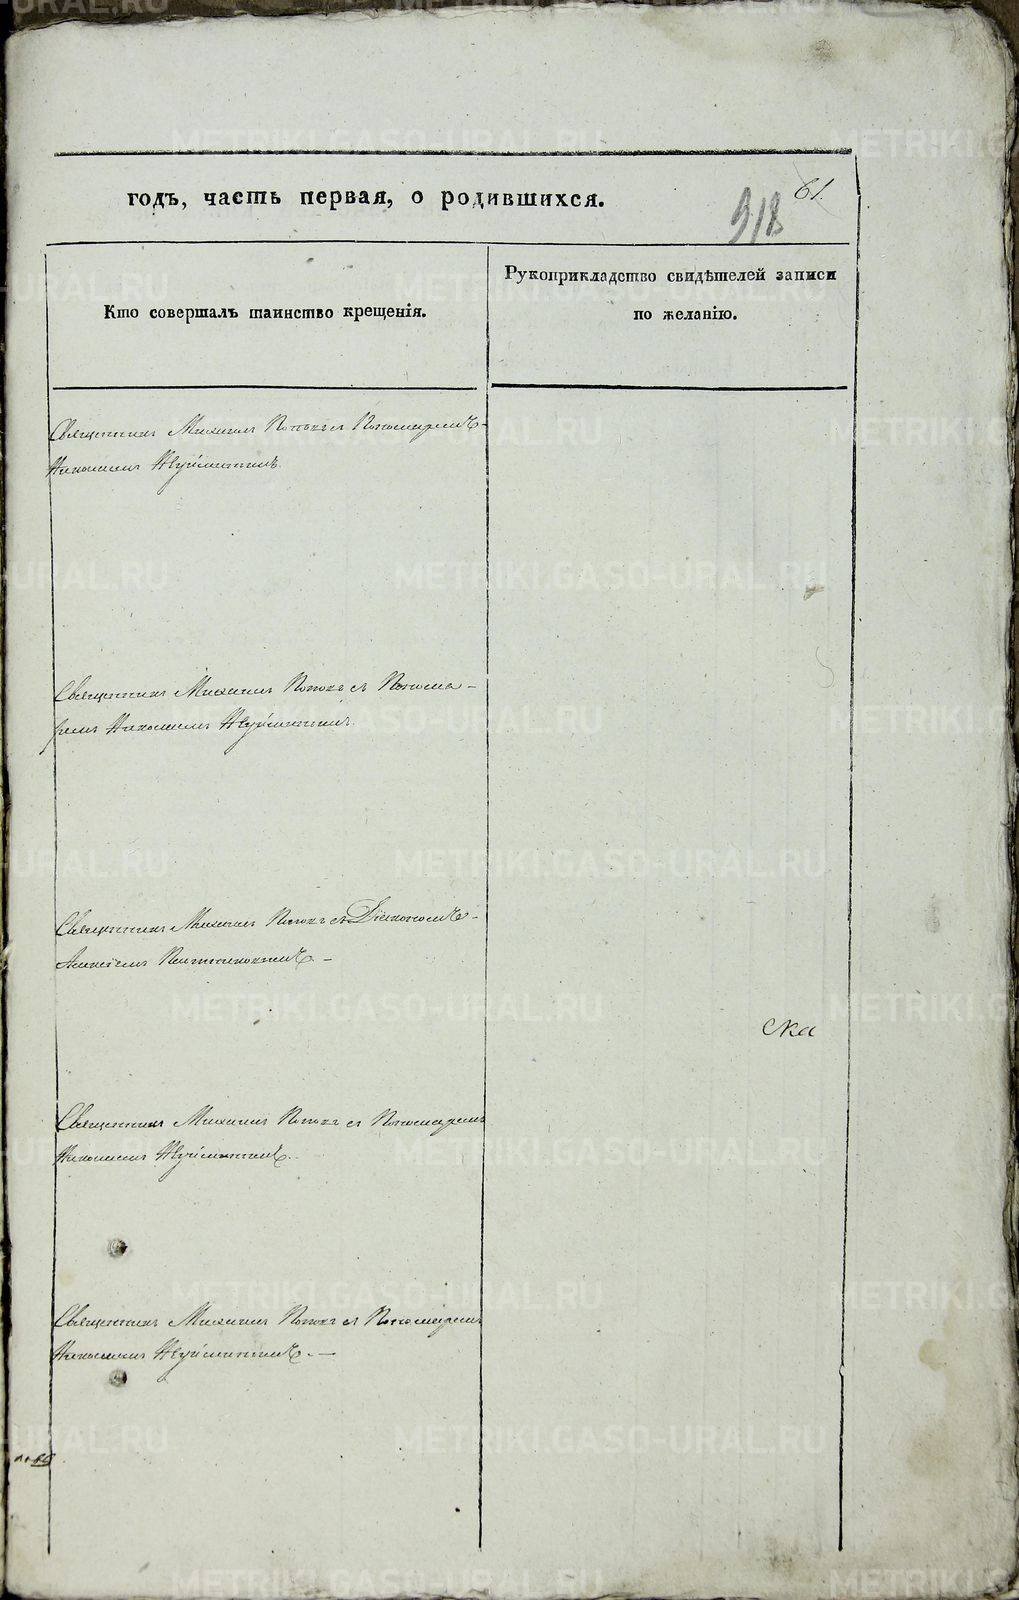 годъ, часть первая, о родившихся.
918
61.
Кто совершалъ таинство крещенія.
Рукоприкладство свидѣтелей записи
по желанію.
Священникъ Михаилъ Поповъ съ Пономаремъ
Николаемъ
Священникъ Михаилъ Поповъ съ Понома-
ремъ Николаемъ
Священникъ Михаилъ Поповъ съ Діакономъ
Алексіемъ
ска
Священникъ Михаилъ Поповъ съ Пономаремъ
Николаемъ
Священникъ Михаилъ Поповъ съ Пономаремъ
Николаемъ
METRIKI.GASO-URAL.RU